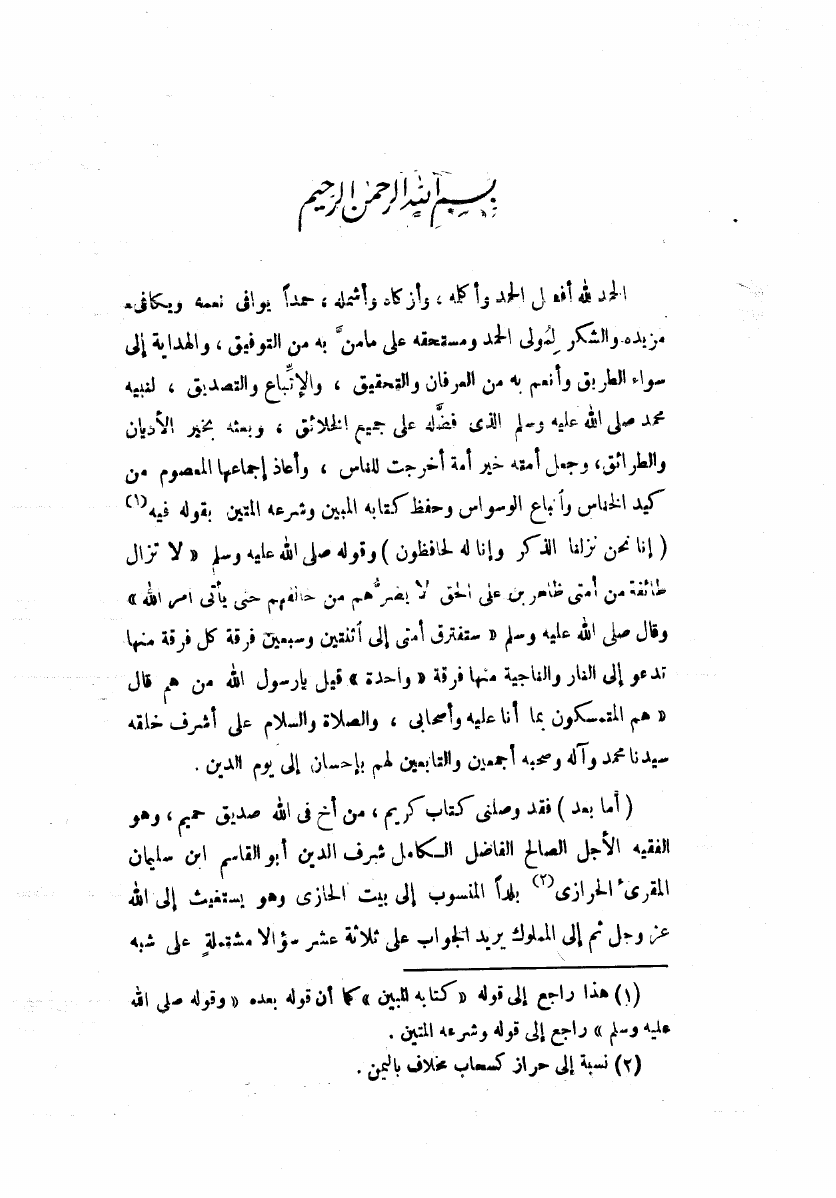 بسم الله الرحمن الرحيم
الحمد لله أفضل الحمد وأكمله ، وأزكاه وأشمله ، حمداً يوافى نعمه ويكافىء
مزيده والشكر لِمُولى الحمد ومستحقه على مامنَّ به من التوفيق ، والهداية إلى
سواء الطريق وأنعم به من العرفان والتحقيق ، والإتِّباع والتصديق ، لنبيه
محمد صلى الله عليه وسلم الذى فضَّله على جميع الخلائق ، وبعثه بخير الأديان
والطرائق ، وجعل أمته خير أمة أخرجت للناس ، وأعاذ إجماعها المعصوم من
كيد الخناس وأتباع الوسواس وحفظ كتابه المبين وشرعه المتين بقوله فيه (١)
( إنا نحن نزلنا الذكر وإنا له لحافظون ) وقوله صلى الله عليه وسلم « لا تزال
طائفة من أمتى ظاهرين على الحق لا يضرُّهم من خالفهم حتى يأتى امر الله »
وقال صلى الله عليه وسلم « ستفترق أمتى إلى أثنتين وسبعين فرقة كل فرقة منها
تدعو إلى النار والناجية منها فرقة « واحدة » قيل يارسول الله من هم قال
« هم المتمسكون بما أنا عليه وأصحابى ، والصلاة والسلام على أشرف خلقه
سيدنا محمد وآله وصحبه أجمعين والتابعين لهم بإحسان إلى يوم الدين .
( أما بعد ) فقد وصلنى كتاب كريم ، من أخ فى الله صديق حميم ، وهو
الفقيه الأجل الصالح الفاضل الكامل شرف الدين أبو القاسم ابن سليمان
المقرىء الحرازى (٢) بلداً المنسوب إلى بيت الحازى وهو يستغيث إلى الله
عز وجل ثم إلى المملوك يريد الجواب على ثلاثة عشر سؤالا مشتملةٍ على شبه
(١) هذا راجع إلى قوله « كتابه المبين » كما أن قوله بعده « وقوله صلى الله
عليه وسلم » راجع إلى قوله وشرعه المتين .
(٢) نسبة إلى حراز كسحاب مخلاف باليمن .